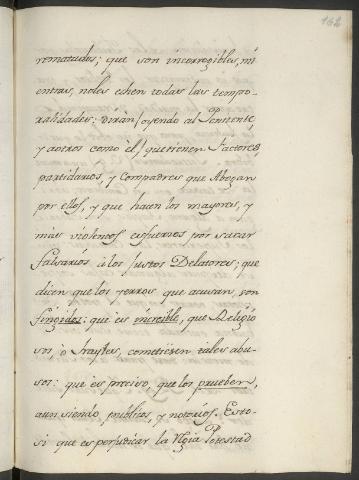 162
rematados; que son incorregibles, mi
entras, no les echen todas las tempo-
ralidades: Dirán (oyendo al Penitente,
y aotros como èl) que tienen Factores,
partidarios, y Compadres que Abogan
por ellos, y que hacen los mayores, y
mas violentos esfuerzos por sacar
falsarios à los Justos Delatores; que
dicen que los yerros que acusan, son
fingidos: que es increible, que Religio
sos, ò frayles, cometiesen tales abu-
sos: que es preciso, que los prueben,
aun siendo publicos, y notorios. Esto-
si que es perjudicar la Rgia Potestad